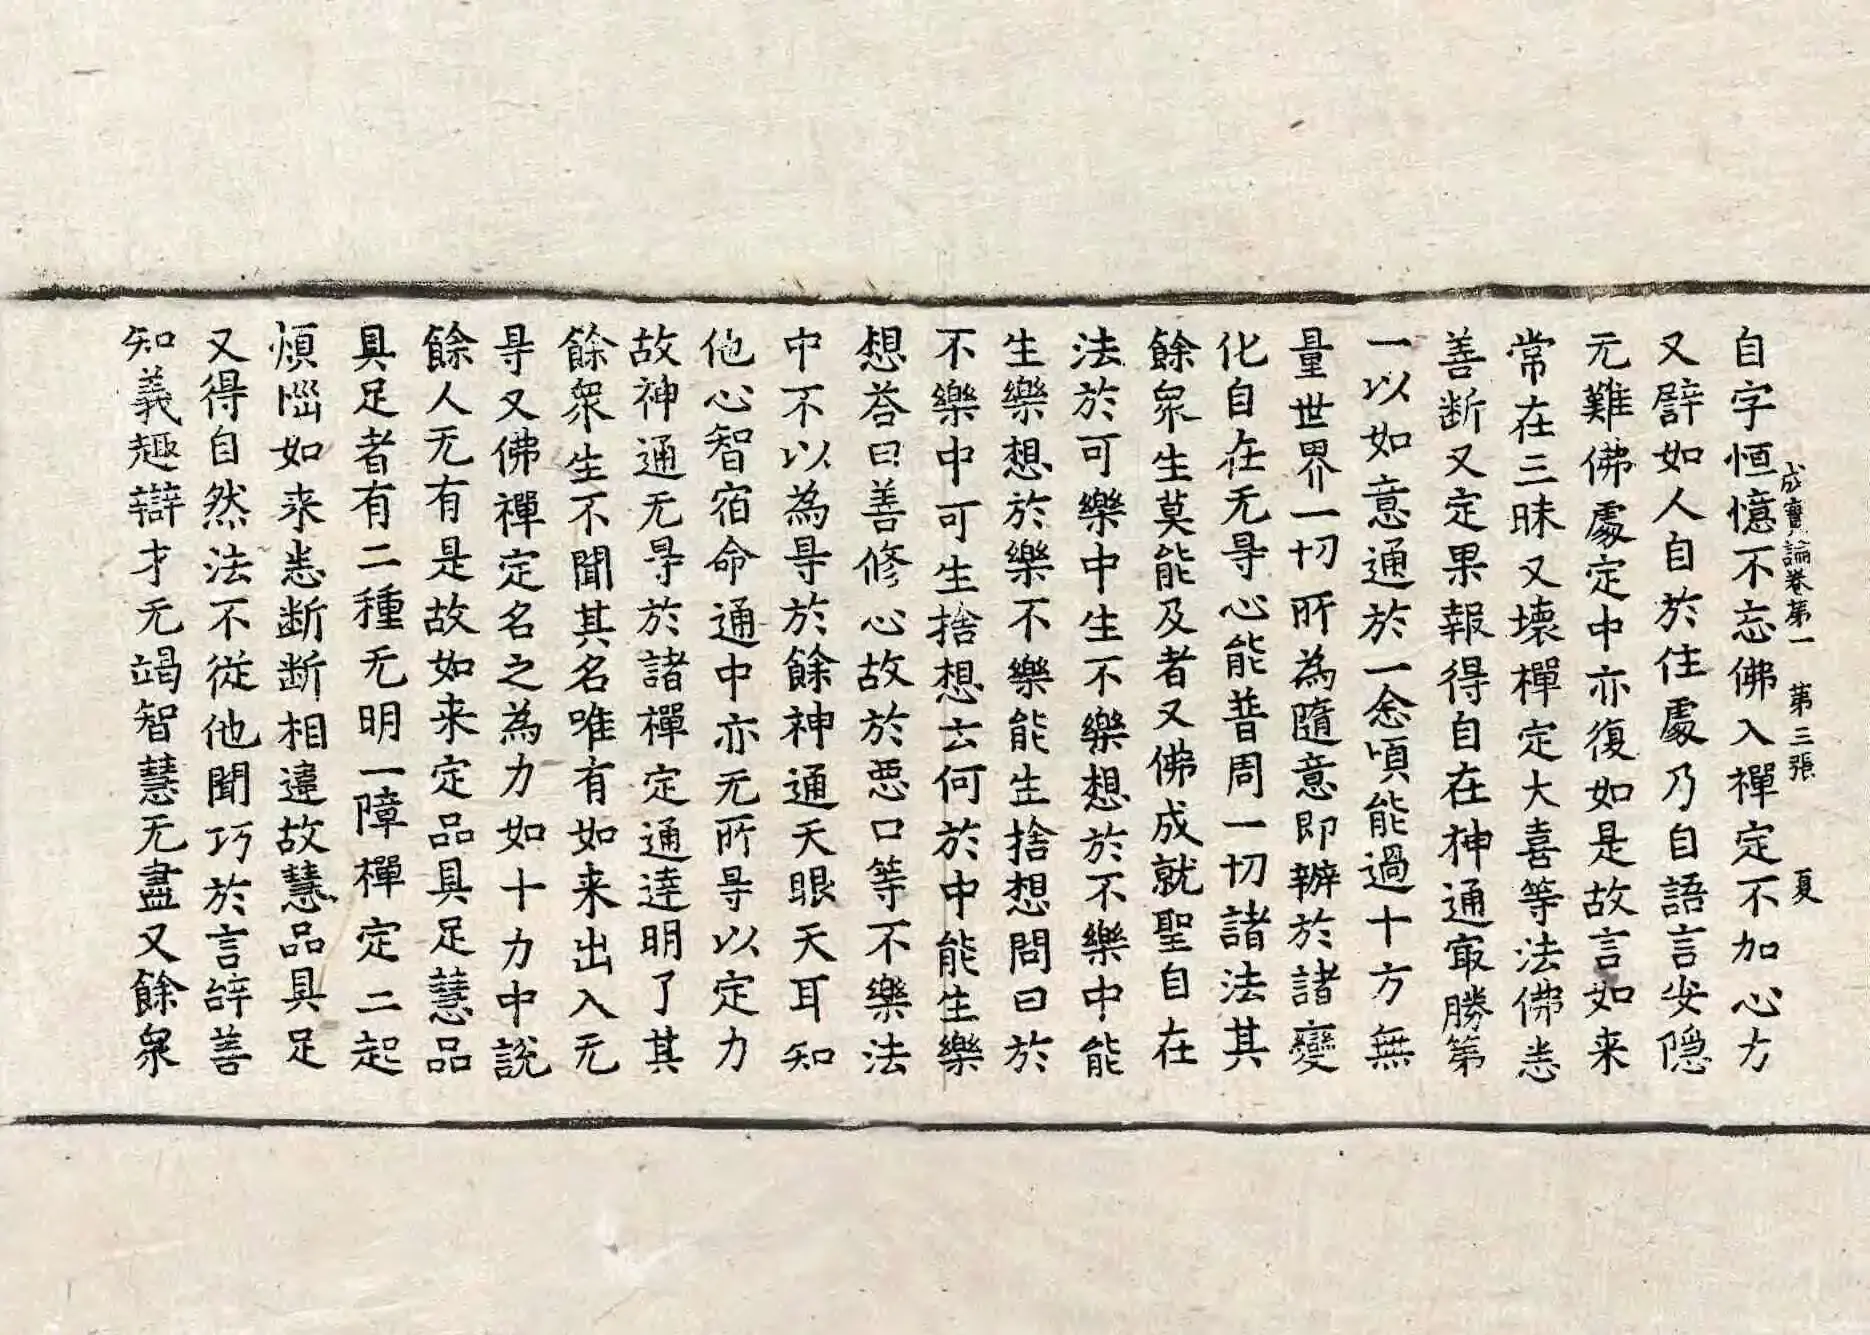 成實論卷第一 第三張 夏
自字恒憶不忘佛入禪定不加心方
又譬如人自於住處乃自語言安隠
无難佛處定中亦復如是故言如来
常在三昧又壞禪定大喜等法佛悉
善断又定果報得自在神通㝡勝第
一以如意通於一念頃能過十方無
量世界一切所為隨意即辦於諸變
化自在无㝵心能普周一切諸法其
餘衆生莫能及者又佛成就聖自在
法於可樂中生不樂想於不樂中能
生樂想於樂不樂能生捨想問曰於
不樂中可生捨想云何於中能生樂
想荅曰善修心故於惡口等不樂法
中不以為㝵於餘神通天眼天耳知
他心智宿命通中亦无所㝵以定力
故神通无㝵於諸禪定通達明了其
餘衆生不聞其名唯有如来出入无
㝵又佛禪定名之為力如十力中說
餘人无有是故如来定品具足慧品
具足者有二種无明一障禪定二起
煩惱如来悉断断相違故慧品具足
又得自然法不從他聞巧於言辝善
知義趣辯才无竭智慧无盡又餘衆